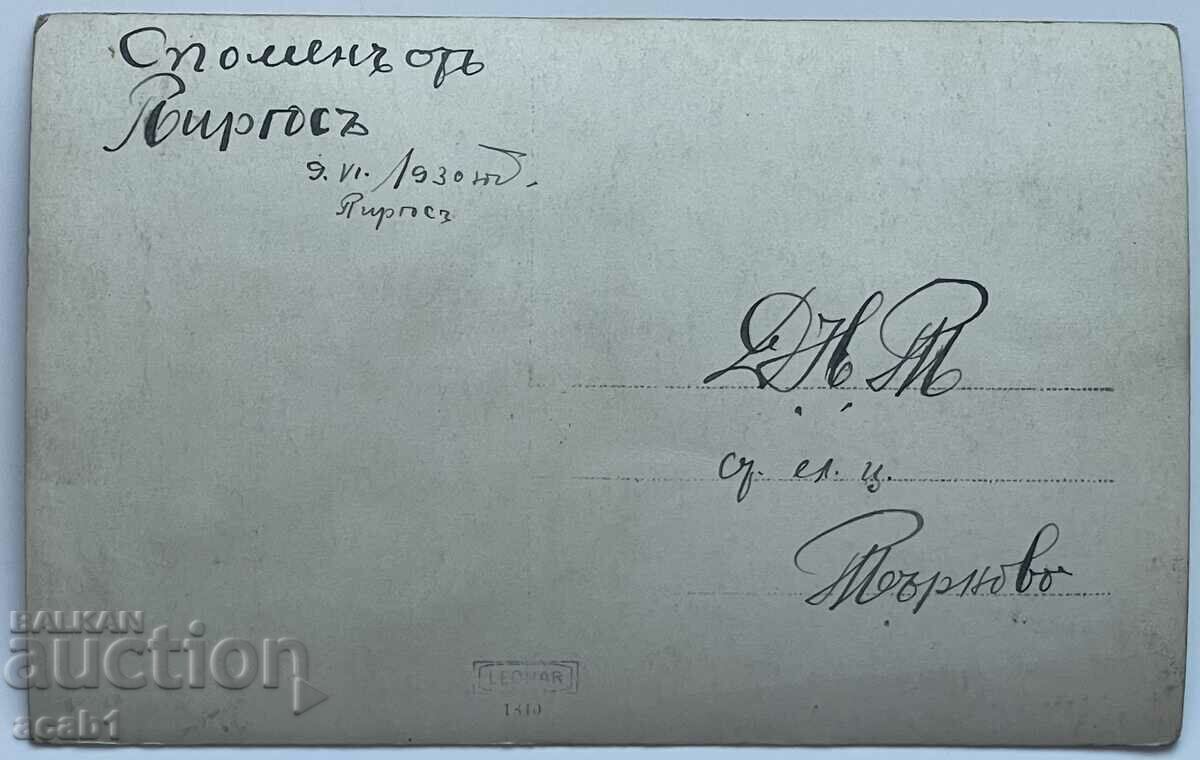 Споменъ отъ
Пиргосъ
9. VI. 1930 год.
Пиргосъ
Д Н Т
ср. ел. ц.
Търново
LEONAR
1310
BALKAN
auction
acab1